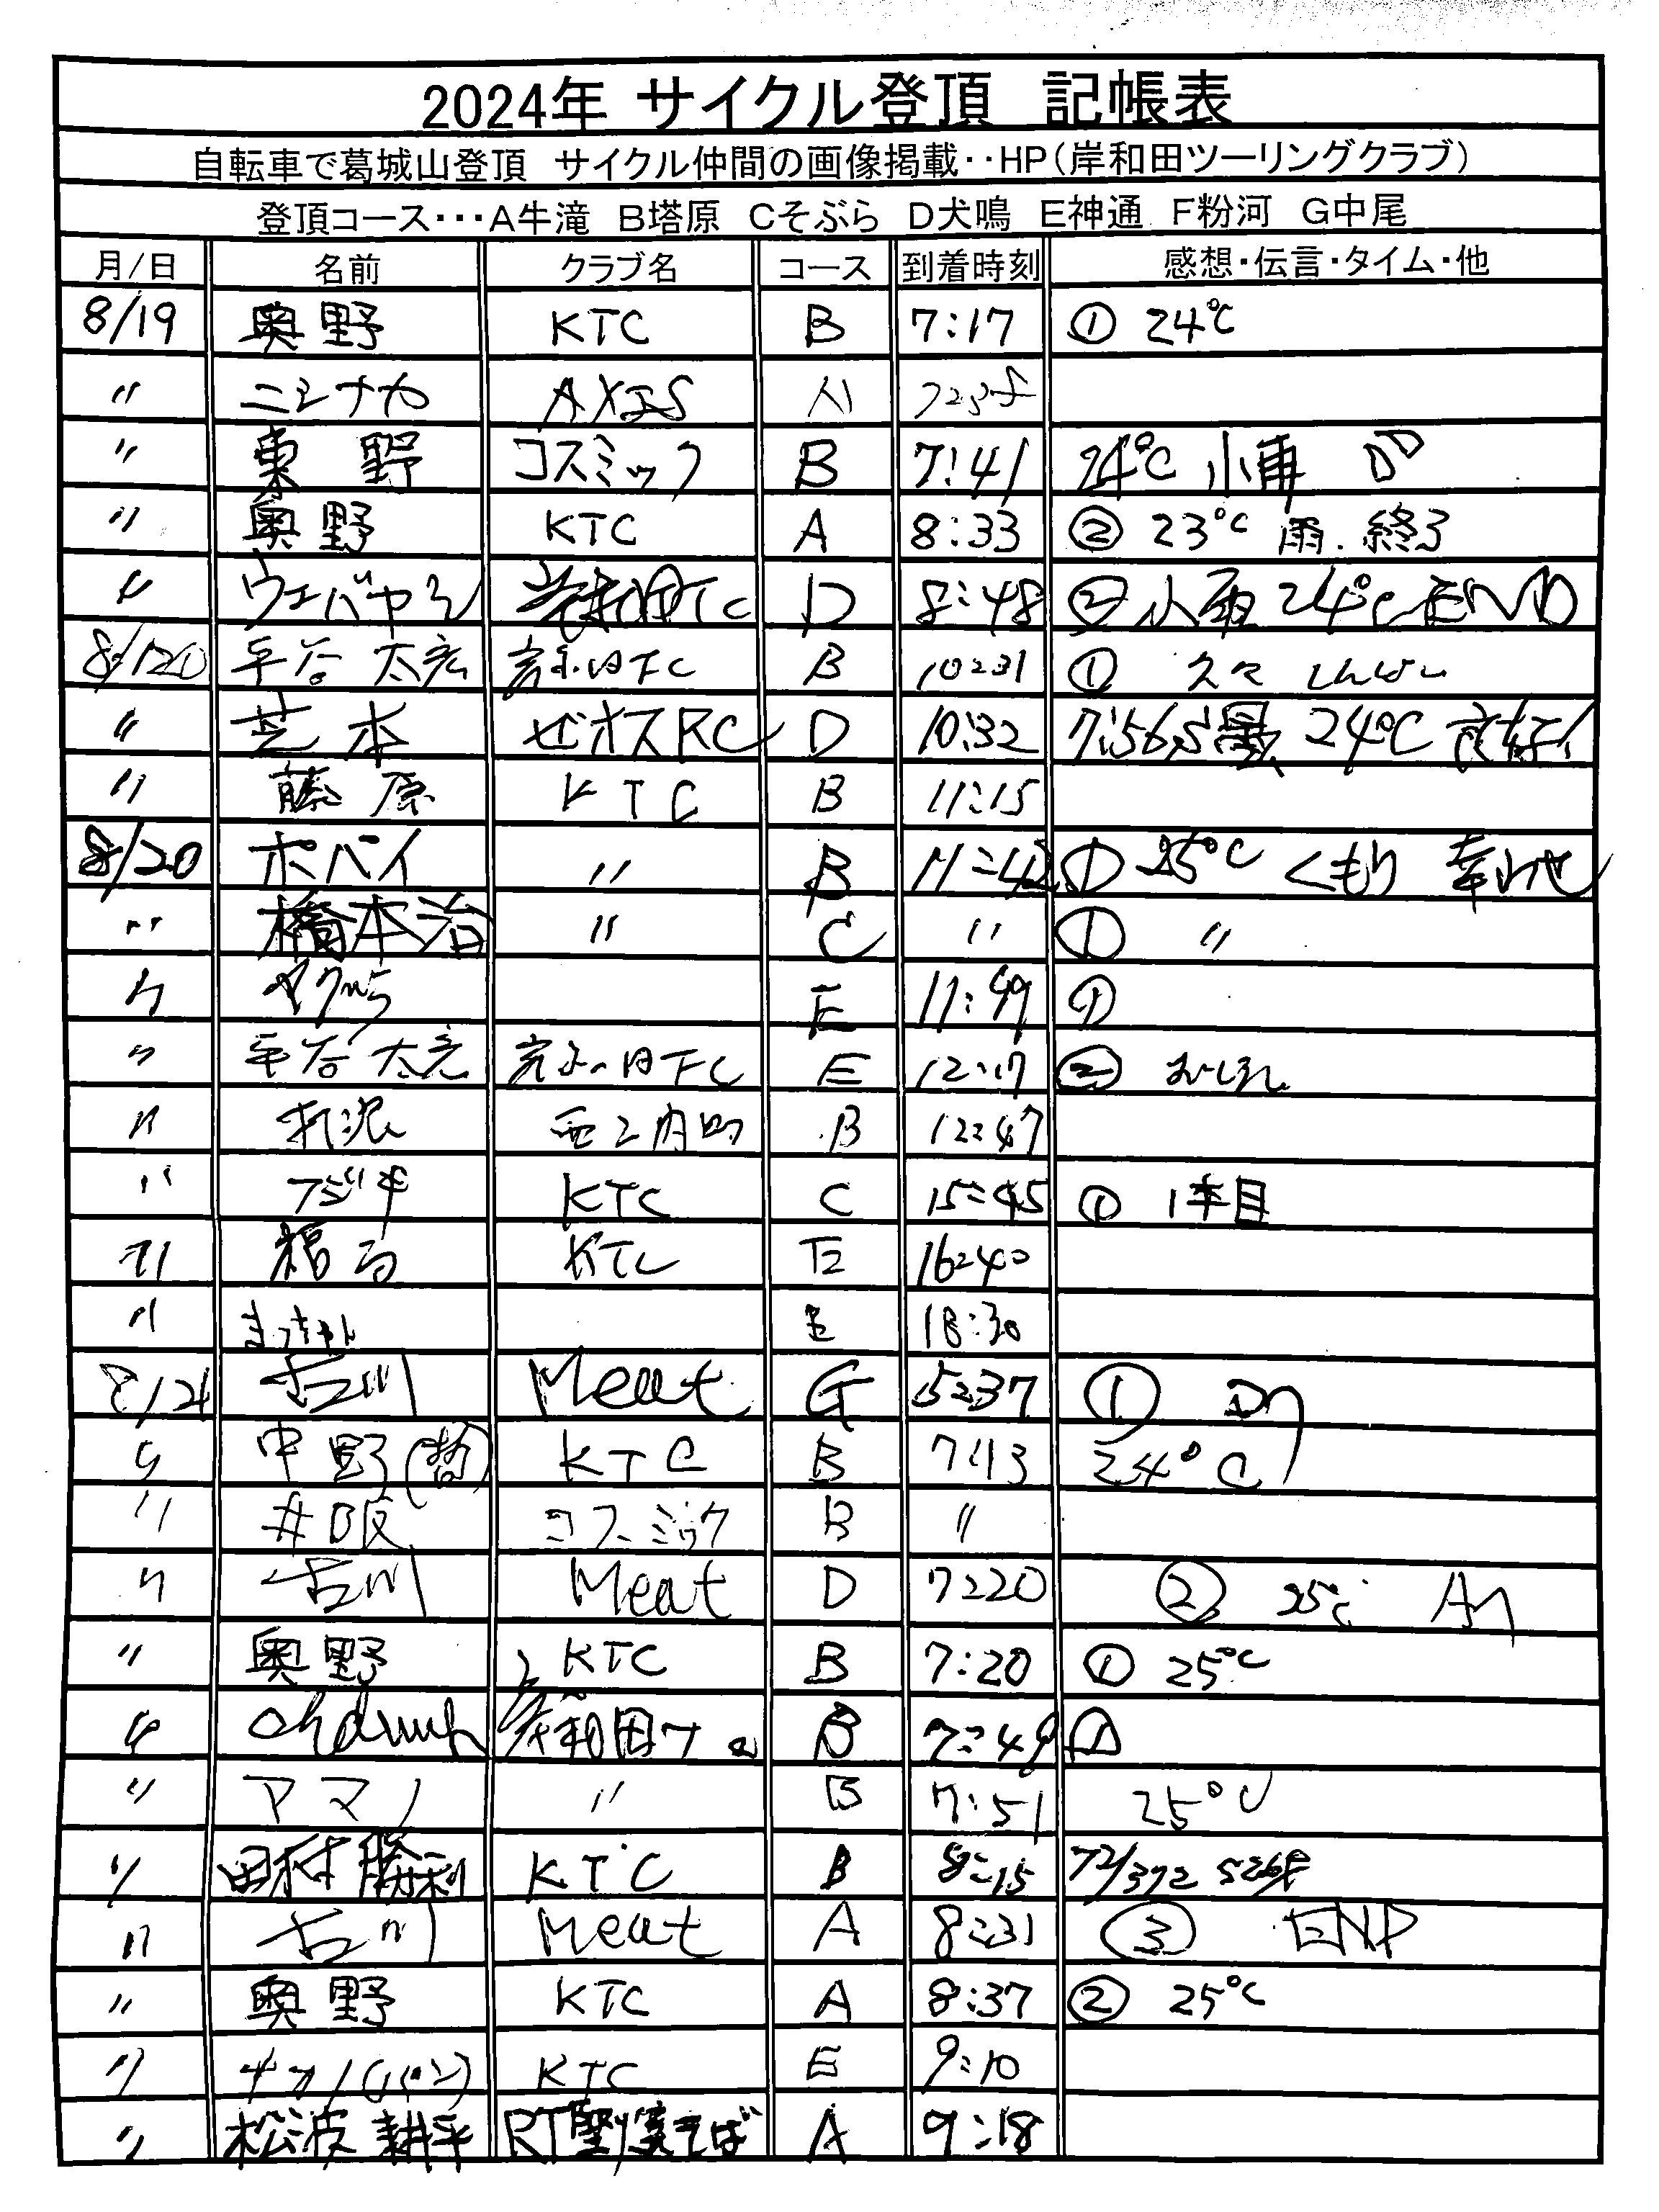 2024年 サイクル登頂 記帳表
自転車で葛城山登頂 サイクル仲間の画像掲載‥HP(岸和田ツーリングクラブ)
登頂コース・・・A牛滝 B塔原 Cそぶら D犬鳴 E神通 F粉河 G中尾
月/日 名前 クラブ名 コース 到着時刻 感想・伝言・タイム・他
8/19 奥野 KTC B 7:17 ① 24℃
〃 ニシナカ AXIS
〃 東野 コスミック B 7:41 24℃ 小雨
〃 奥野 KTC A 8:33 ② 23℃ 雨.終了
〃 ウエバヤシ 岸和田TC D 8:48 ② 小雨 24℃ END
8/20 平谷 太志 岸和田TC B 10:31 ① 久々 しんぱい
〃 芝本 ゼオスRC D 10:32 24℃
〃 藤原 KTC B 11:15
8/20 ポパイ 〃 B 11:42 ① 25℃ くもり 幸わせ
〃 橋本治 〃 C 〃 ① 〃
〃 E 11:49 ①
〃 平谷 太志 岸和田TC E 12:17 ②
〃 B 12:47
〃 フジ井 KTC C 15:45 ① 1本目
〃 KTC E 16:40
〃 まっちゃん E 18:30
8/21 古川 Meat G 5:37 ① Dへ
〃 中野(哲) KTC B 7:13 24℃
〃 井阪 コスミック B 〃
〃 古川 Meat D 7:20 ② 25℃ Aへ
〃 奥野 KTC B 7:20 ① 25℃
〃 岸和田 B 7:49 ①
〃 アマノ 〃 B 7:51 25℃
〃 田村勝利 KTC B 8:15 72/372
〃 古川 Meat A 8:31 ③ END
〃 奥野 KTC A 8:37 ② 25℃
〃 KTC E 9:10
〃 松波 耕平 RT堅焼そば A 9:18